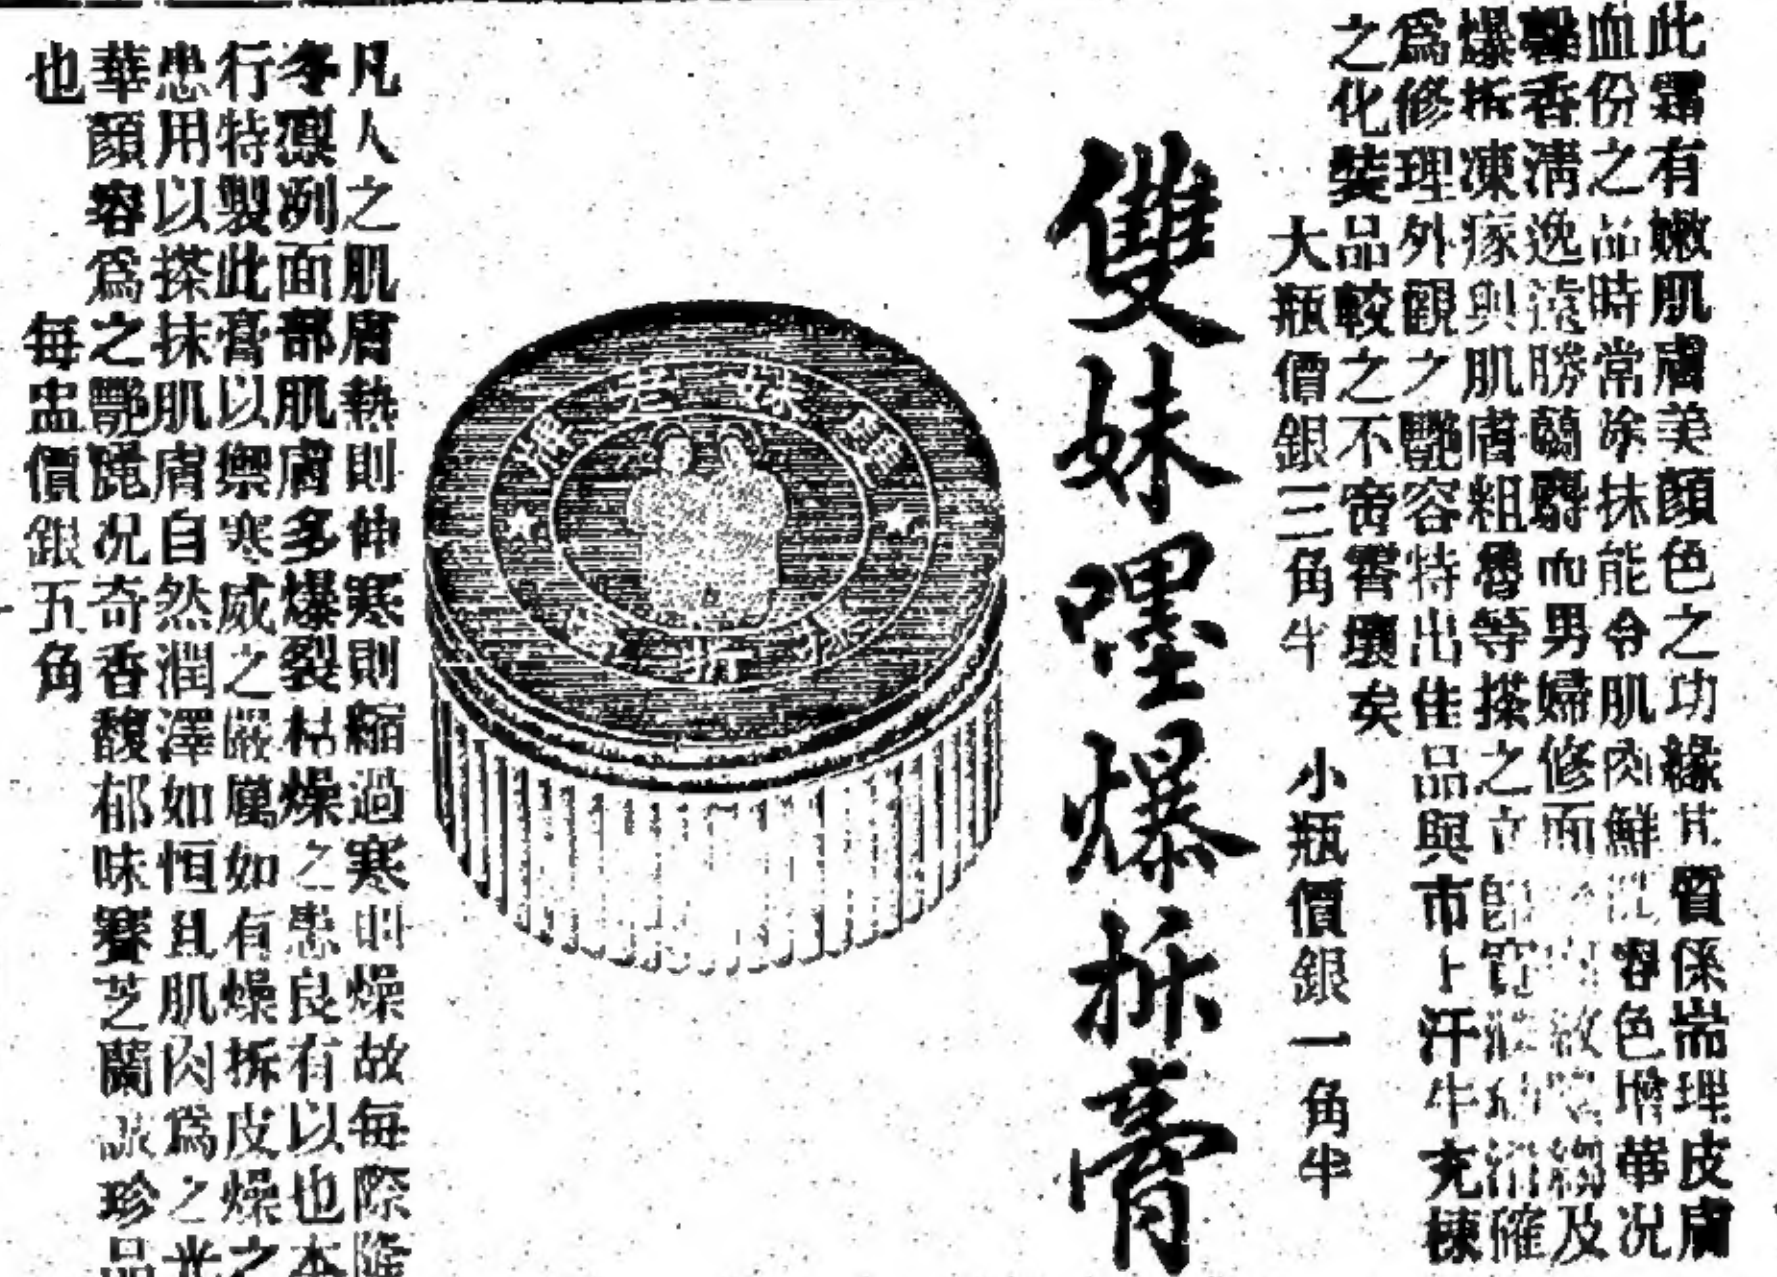 此霜有嫩肌膚美顏色之功緣其質係耑理皮膚
血份之品時常涂抹能令肌肉鮮 容色增華况
馨香清逸遠勝蘭麝而男婦修面 紋 及
爆拆凍瘃與肌膚粗魯等搽之立卽 消確
爲修理外觀之艷容特出佳品與市上汗牛充棟
之化裝品較之不啻霄壤矣
大瓶價銀三角半 小瓶價銀一角半
雙妹嚜爆拆膏
雙妹老牌
爆拆膏
凡人之肌膚熱則伸寒則縮過寒則燥故每際隆
冬凛冽面部肌膚多爆裂枯燥之患良有以也本
行特製此膏以禦寒威之嚴厲如有燥拆皮燥之
患用以搽抹肌膚自然潤澤如恒且肌肉爲之光
華顏容爲之艷麗况奇香馥郁味賽芝蘭誠珍品
也
每盅價銀五角